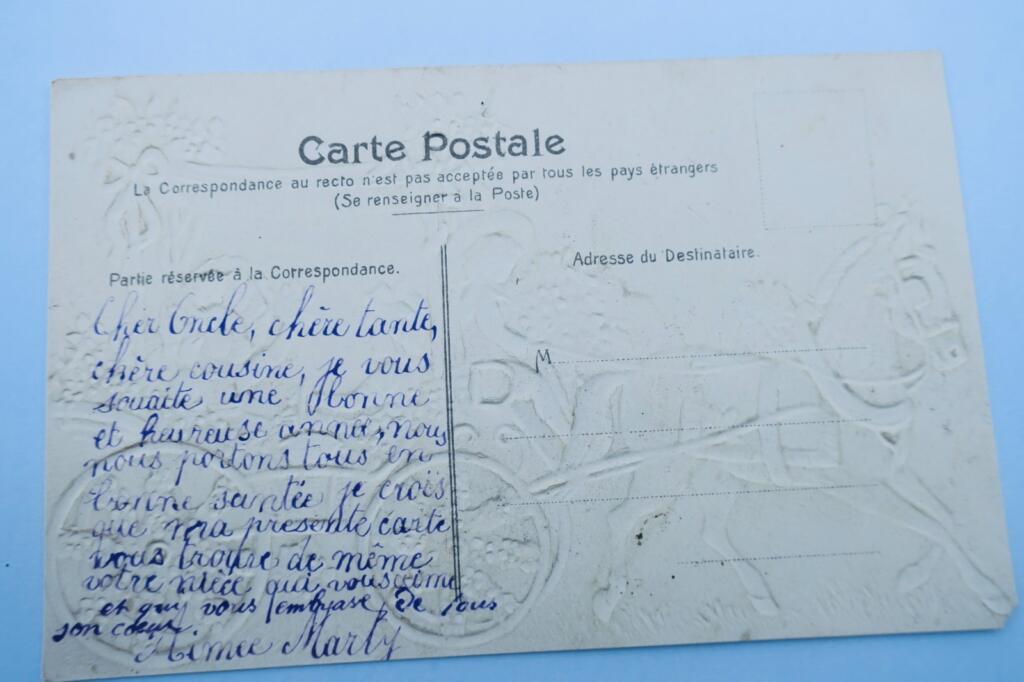 Carte Postale
La Correspondance au recto n'est pas acceptée par tous les pays étrangers
(Se renseigner à la Poste)
Partie réservée à la Correspondance.
Adresse du Destinataire.
M
Cher Oncle, chère tante,
chère cousine, je vous
souaite une bonne
et haureuse année, nous
nous portons tous en
bonne santée je crois
que ma présente carte
vous trouve de même
votre niece qui vous aime
et qui vous embrase, De tous
son cœur.
Aimée Marly